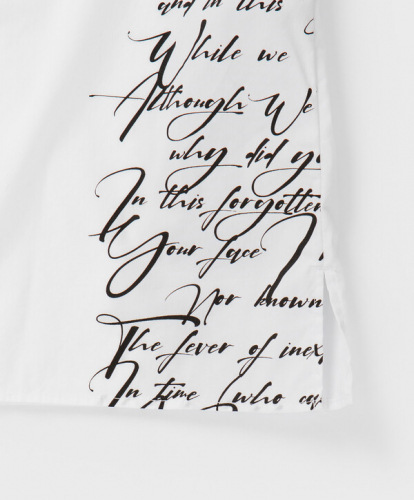 and in this
While we
Although We
why did yo
In this forgotten
Your face
Nor known
The fever of inex
In time who